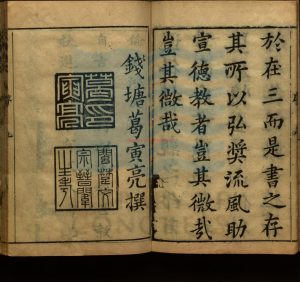 於在三而是書之存
其所以弘奨流風助
宣德教者豈其微哉
豈其微哉
錢塘葛寅亮撰